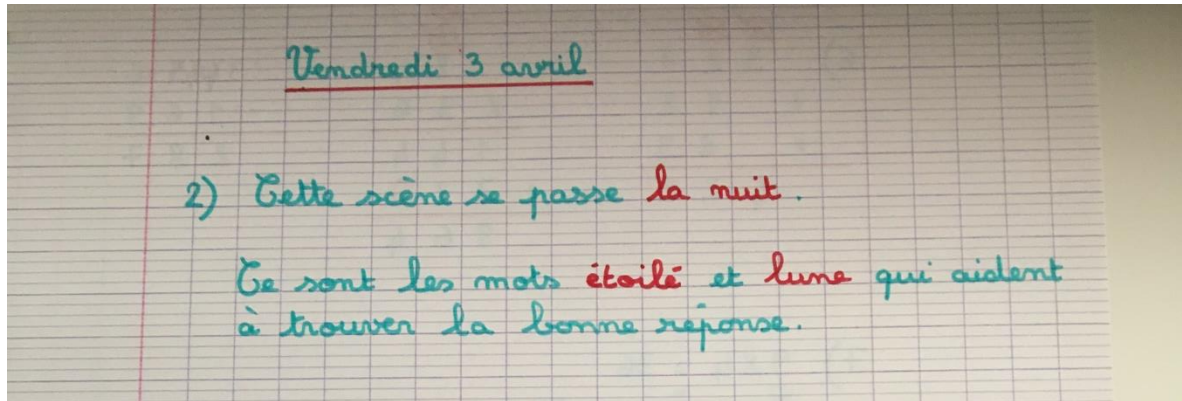 Vendredi 3 avril
2) Cette scène se passe la nuit.
Ce sont les mots étoilé et lune qui aident
à trouver la bonne réponse.